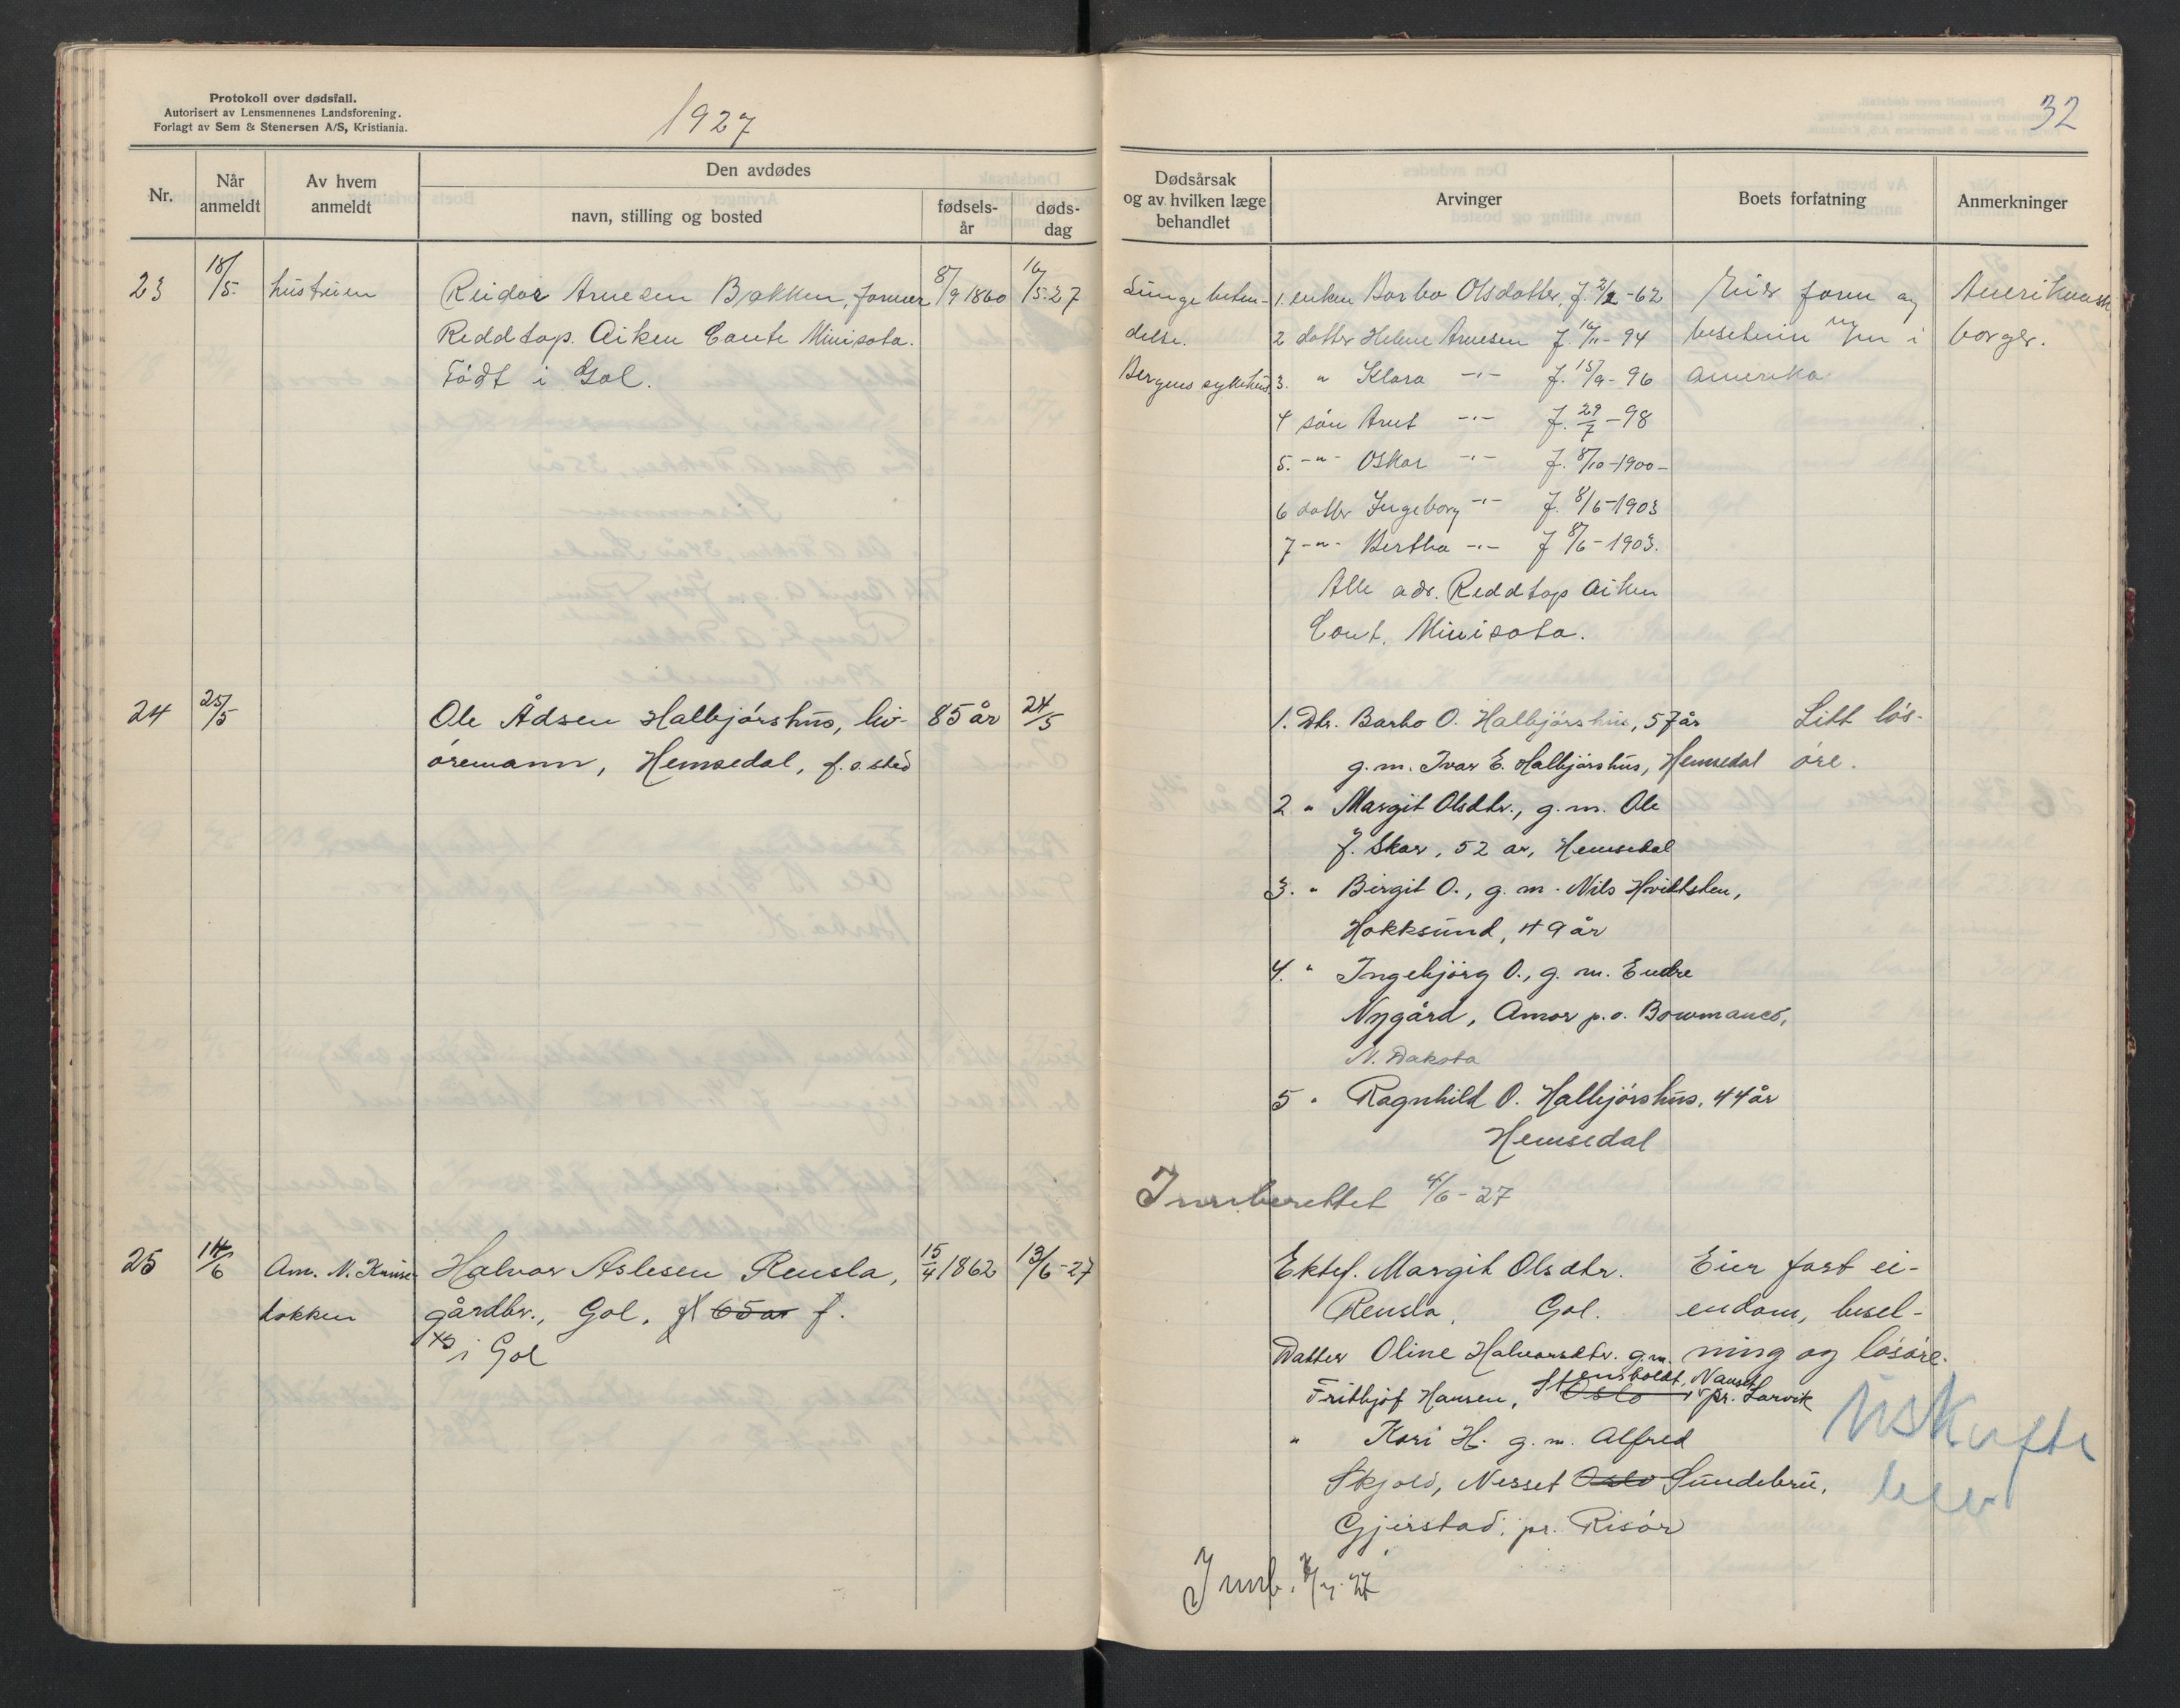 Protokoll over dødsfall.
Autorisert av Lensmennenes Landsforening.
Forlagt av Sem & Stenersen A/S, Kristiania.
1927
Nr.
Når anmeldt
Av hvem anmeldt
Den avdødes
navn, stilling og bosted
fødsels-år
døds-dag
23 18/5. hustruen Reidar Arnesen Bakken, farmer 8/9 1860 16/5-27
Reddtop. Aiken Counte Minisota.
Født i Gol.
24 25/5 Ole Ådsen Halbjørshus, liv- 85 år 24/5
øremann, Hemsedal, f. s. sted
25 14/6 Am. N. Halvor Aslesen Rensla, 15/4 1862 13/6-27
tokken gårdbr., Gol. 65 år f.
i Gol
32
Dødsårsak og av hvilken læge behandlet
Arvinger
Boets forfatning
Anmerkninger
Lungebeten- 1. enken Barbo Olsdatter, f. 2/2-62 Eier farm og Amerikansk
delse. 2 datter Helene Arnesen f. 16/11-94 i borger.
Bergens sykehus 3. " Klara -"- f. 15/9-96 Amerika
4 søn Arnt -"- f. 29/7-98
5. -"- Oskar -"- f. 8/10-1900-
6 datter Ingeborg -"- f. 8/6-1903
7 -"- Bertha -"- f 8/6-1903.
Alle adr. Reddtop Aiken
Cont. Minisota.
1. Dtr. Barbo O. Halbjørshus, 57 år Litt løs-
g.m. Ivar E. Halbjørshus, Hemsedal øre.
2 " Margit Olsdtr., g. m. Ole
J. Skar, 52 år, Hemsedal
3. " Birgit O., g. m. Nils Hvittsten,
Hokksund, 49 år
4. " Ingebjørg O., g. m. Endre
Nygård, Amor p.o. Bowmanco,
N. Dakota
5 " Ragnhild O. Halbjørshus, 44 år
Hemsedal
Innberettet 4/6-27
Ektef. Margit Olsdtr. Eier fast ei-
Rensla, Gol. endom, besel-
Datter Oline Halvorsdtr. g.m. ning og løsøre.
Stensholdt, Nanset
Frithjof Hansen, Oslo pr. Larvik
" Kari H. g. m. Alfred
Skjold, Nesset Oslo Sundebru,
Gjerstad, pr. Risør
Uskifte
bev
Innb.